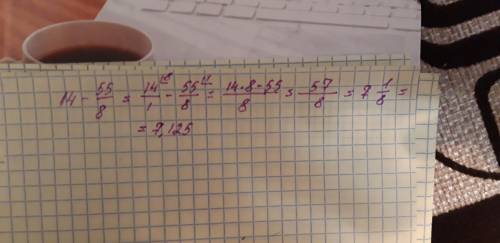 14 - 55/8 = 14/1 \8 - 55/8 \1 = 14·8-55/8 = 57/8 = 7 1/8 =
= 7,125